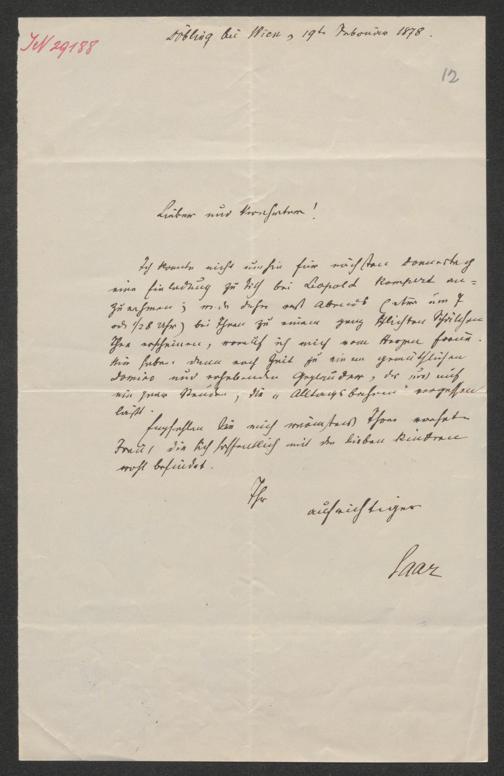 IN 29188
Döbling bei Wien, 19t Februar 1878.
12
Lieber und Verehrter!
Ich konnte nicht umhin für nächsten Donnerstag
eine Einladung zu Tisch bei Leopold Kompert an-
zunehmen; werde daher erst Abends (etwa um 7
oder 1/28 Uhr) bei Ihnen zu einem ganz schlichten Schälchen
Thee erscheinen, worauf ich mich vom Herzen freue.
Wir haben dann noch Zeit zu einem gemüthlichen
Domino und erhebenden Geplauder, das uns auf
ein paar Stunden, die „Alltagsbahn“ vergessen
läßt.
Empfehlen Sie mich wärmstens Ihrer verehrten
Frau, die sich hoffentlich mit den lieben Kindern
wohl befindet.
Ihr
aufrichtiger
Saar